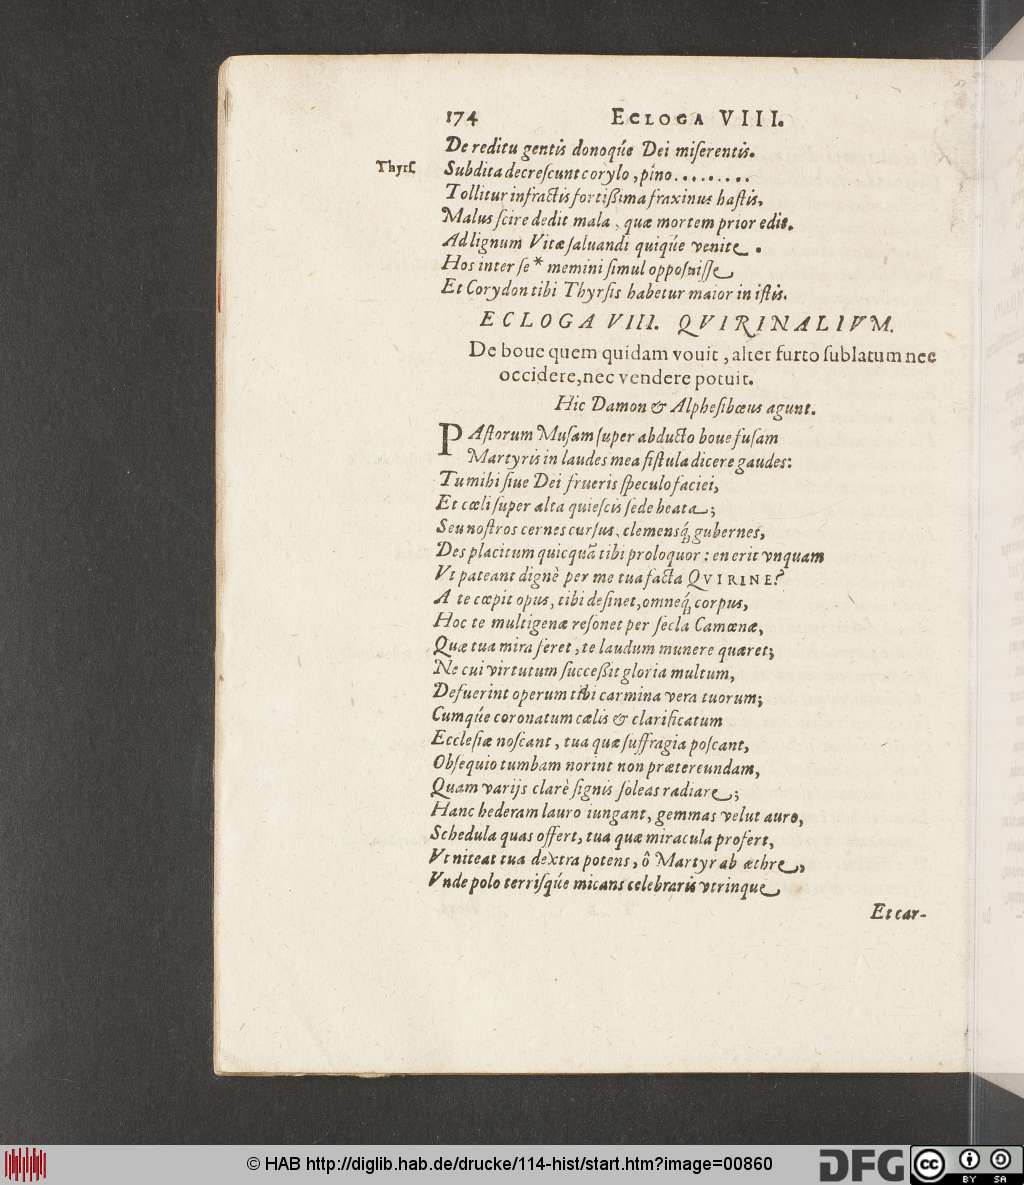 174 ECLOGA VIII.
De reditu gentis donoqúe Dei miſerentis.
Thyrſ. Subdita decreſcunt corylo, pino.........
Tollitur infractis fortißima fraxinus haſtis,
Malus ſcire dedit mala, quæ mortem prior edit.
Ad lignum Vitæ ſaluandi quiqúe venite.
Hos inter ſe* memini ſimul oppoſuiſſe
Et Corydon tibi Thyrſis habetur maior in iſtis.
ECLOGA VIII. QVIRINALIVM.
De boue quem quidam vouit, alter furto ſublatum nec
occidere, nec vendere potuit.
Hic Damon & Alpheſibœus agunt.
PAſtorum Muſam ſuper abducto boue fuſam
Martyris in laudes mea fiſtula dicere gaudes:
Tu mihi ſiue Dei frueris ſpeculo faciei,
Et cœli ſuper alta quieſcis ſede beata;
Seu noſtros cernes curſus, clemensq́; gubernes,
Des placitum quicquã tibi proloquor: en erit vnquam
Vt pateant dignè per me tua facta QVIRINE?
A te cœpit opus, tibi deſinet, omneq́; corpus,
Hoc te multigenæ reſonet per ſecla Camœnæ,
Quæ tua mira feret, te laudum munere quæret;
Ne cui virtutum ſucceßit gloria multum,
Defuerint operum tibi carmina vera tuorum;
Cumqúe coronatum cælis & clarificatum
Eccleſiæ noſcant, tua quæ ſuffragia poſcant,
Obſequio tumbam norint non prætereundam,
Quam varijs clarè ſignis ſoleas radiare;
Hanc hederam lauro iungant, gemmas velut auro,
Schedula quas offert, tua quæ miracula profert,
Vt niteat tua dextra potens, ô Martyr ab æthre,
Vnde polo terriſqúe micans celebraris vtrinque
Et car-
© HAB http://diglib.hab.de/drucke/114-hist/start.htm?image=00860
DFG
cc
BY SA